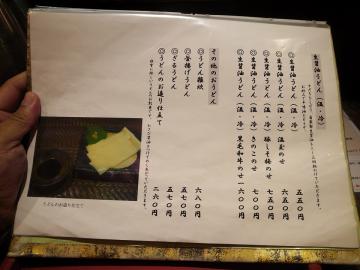 生醤油うどん（温・冷）
◎生醤油うどん（温・冷） 五五〇円
◎生醤油うどん（温・冷）温玉のせ 六五〇円
◎生醤油うどん（温・冷）豚しそ梅のせ 七五〇円
◎生醤油うどん（温・冷）きのこのせ 七〇〇円
◎生醤油うどん（温・冷）黒毛和牛のせ 一六〇〇円
その他のおうどん
◎うどん雑炊 六八〇円
◎釜揚げうどん 五七〇円
◎ざるうどん 五七〇円
◎うどんのお造り仕立て 二六〇円
うどんのお造り仕立て